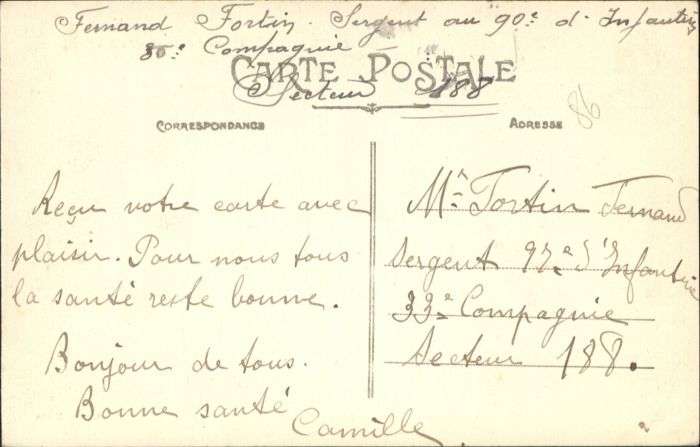 Fernand Fortin. Sergent au 90e d'Infanterie
35e Compagnie
CARTE POSTALE
Secteur 188
86
CORRESPONDANCE
ADRESSE
Reçu votre carte avec
plaisir. Pour nous tous
la santé reste bonne.
Bonjour de tous.
Bonne santé
Camille
Mr Fortin Fernand
Sergent 97e d'Infanterie
33e Compagnie
Secteur 188.